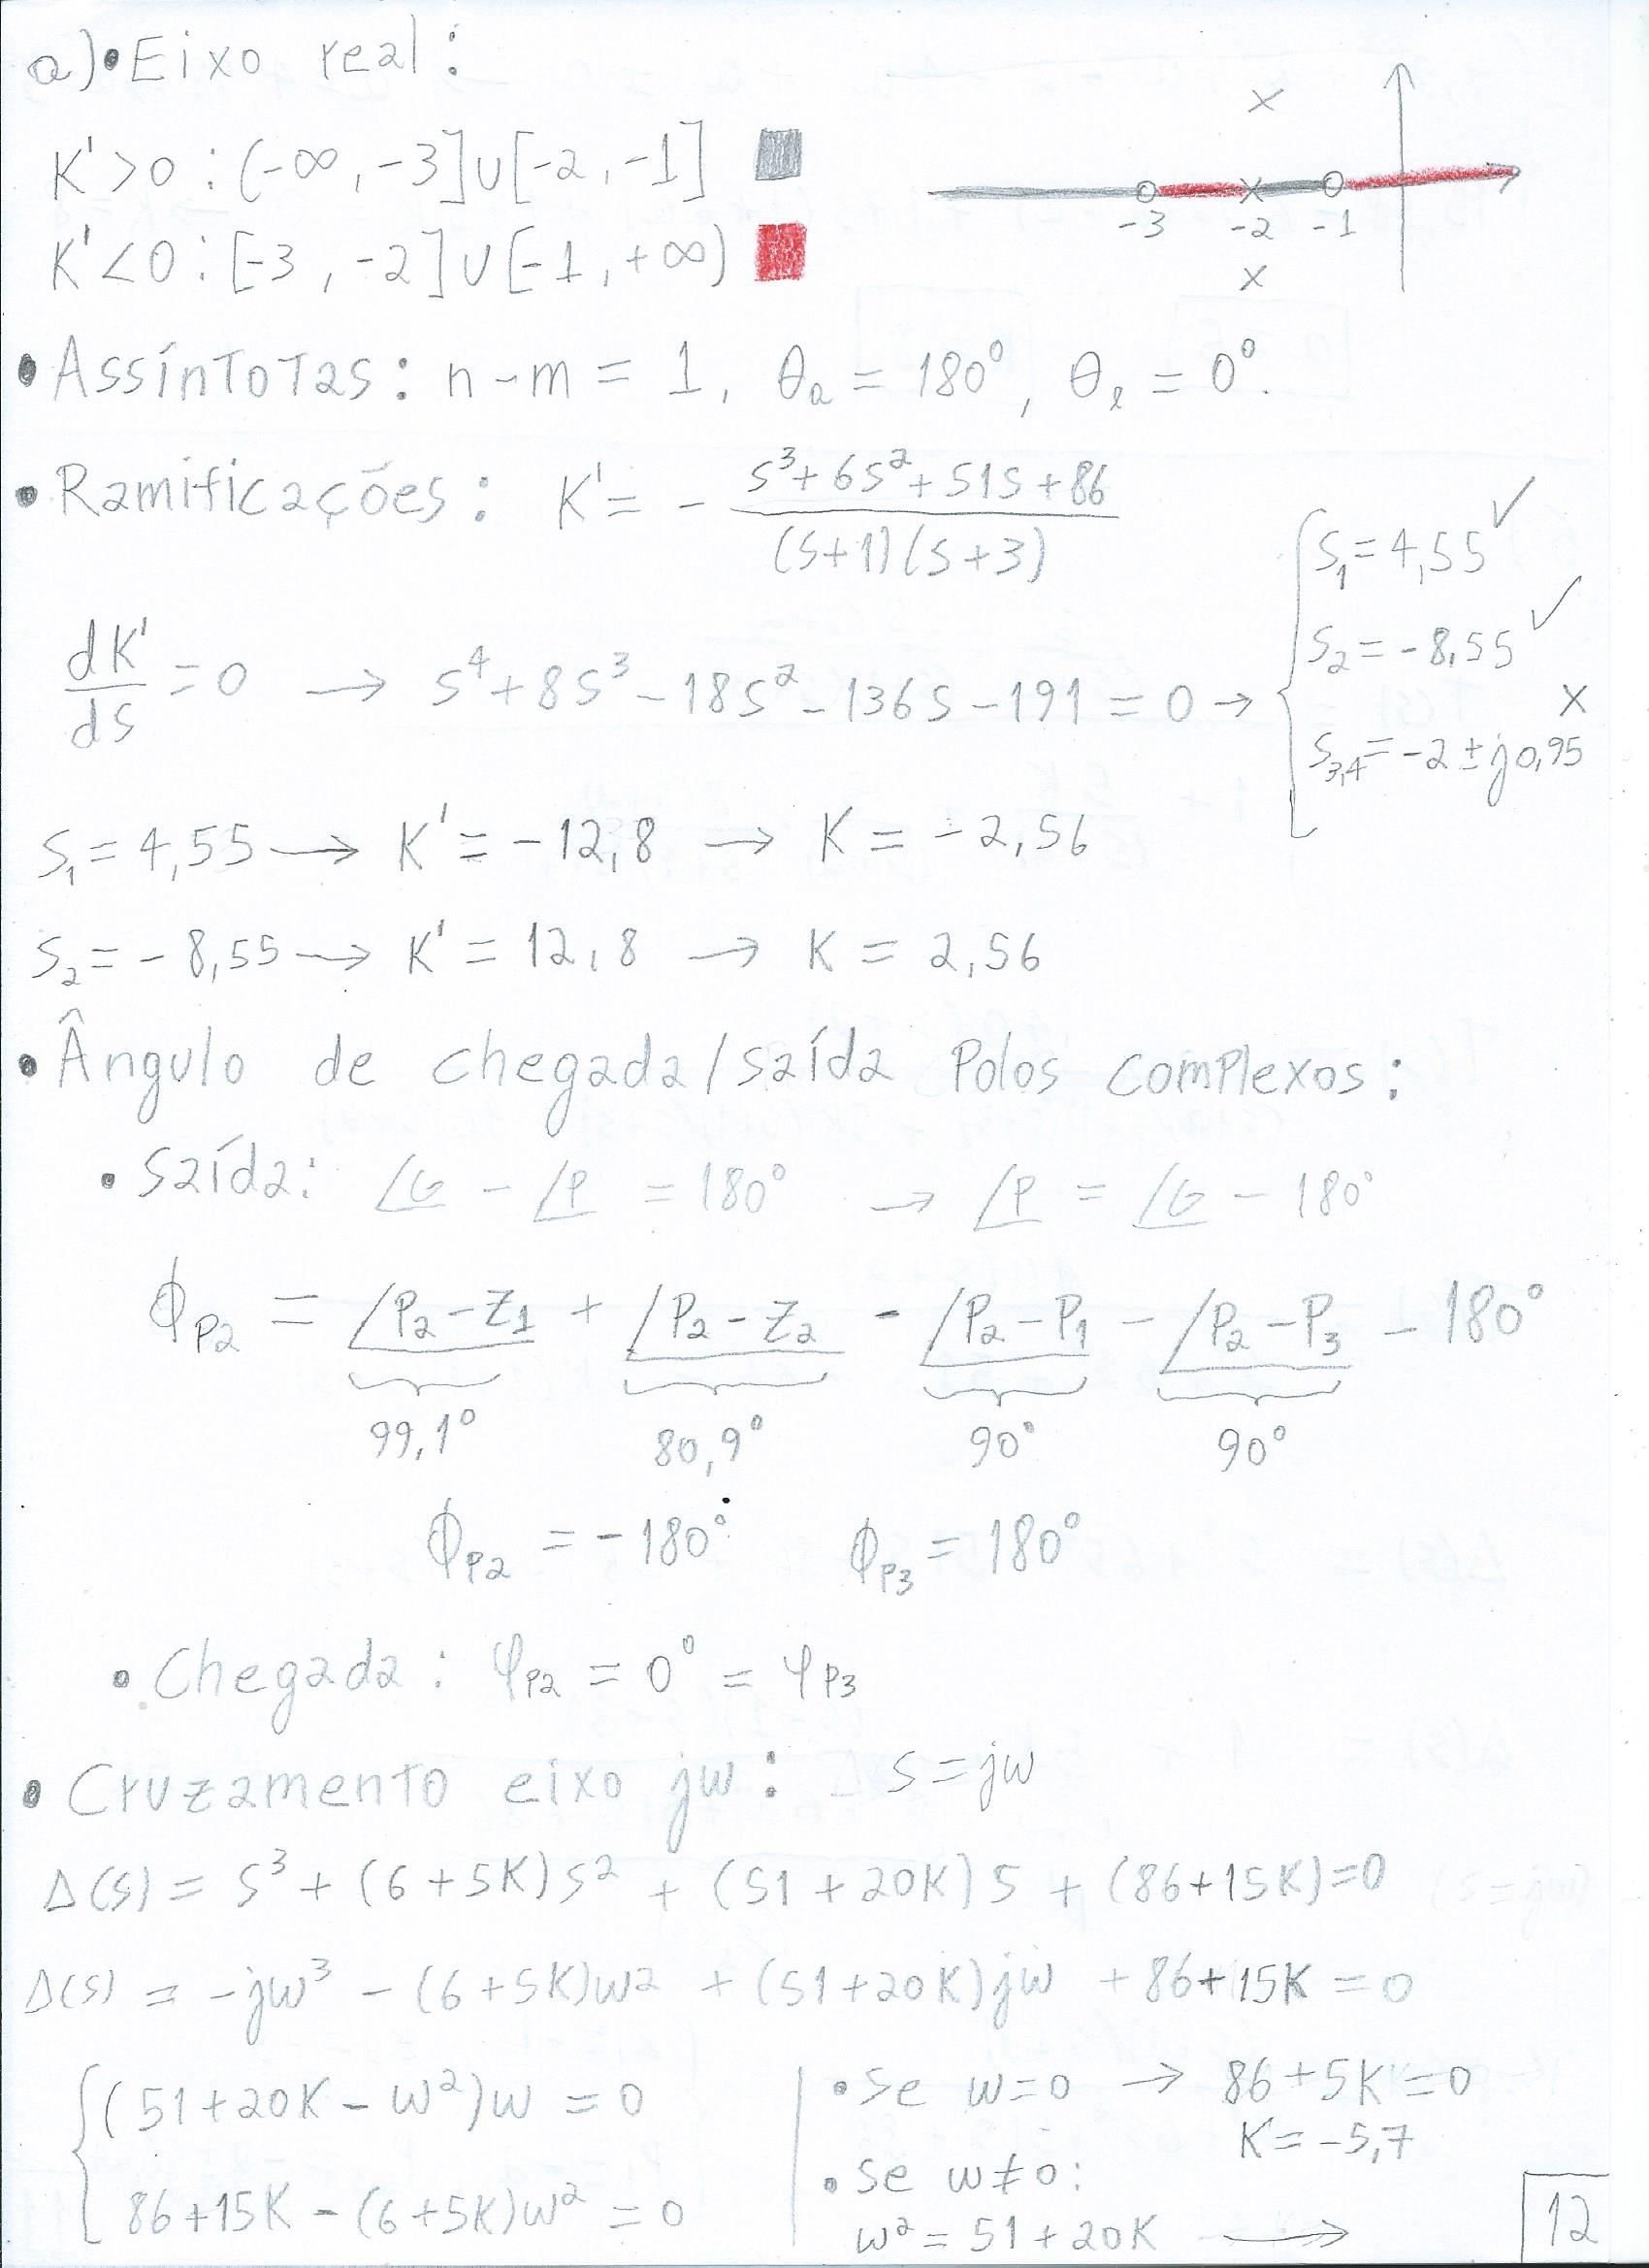 a) • Eixo real:
K'>0 : (-∞, -3]∪[-2, -1]
K'<0 : [-3, -2]∪[-1, +∞)
x
x
-3 -2 -1
x
• Assíntotas: n-m = 1, θa = 180°, θl = 0°.
• Ramificações: K' = - (s³+6s²+51s+86)/((s+1)(s+3))
dK'/ds = 0 → s⁴+8s³-18s²-136s-191 = 0 →
s₁ = 4,55 ✓
s₂ = -8,55 ✓
s₃,₄ = -2 ± j0,95 x
s₁ = 4,55 → K' = -12,8 → K = -2,56
s₂ = -8,55 → K' = 12,8 → K = 2,56
• Ângulo de chegada/saída Polos complexos:
• Saída: ∠G - ∠P = 180° → ∠P = ∠G - 180°
ϕP2 = ∠P₂-Z₁ + ∠P₂-Z₂ - ∠P₂-P₁ - ∠P₂-P₃ - 180°
99,1° 80,9° 90° 90°
ϕP2 = -180° ϕP3 = 180°
• Chegada: φP2 = 0° = φP3
• Cruzamento eixo jw: s = jw
Δ(s) = s³ + (6+5K)s² + (51+20K)s + (86+15K)=0
Δ(s) = -jw³ - (6+5K)w² + (51+20K)jw + 86+15K = 0
(51+20K-w²)w = 0
86+15K-(6+5K)w² = 0
• se w=0 → 86+5K=0
K = -5,7
• se w≠0:
w² = 51+20K →
12